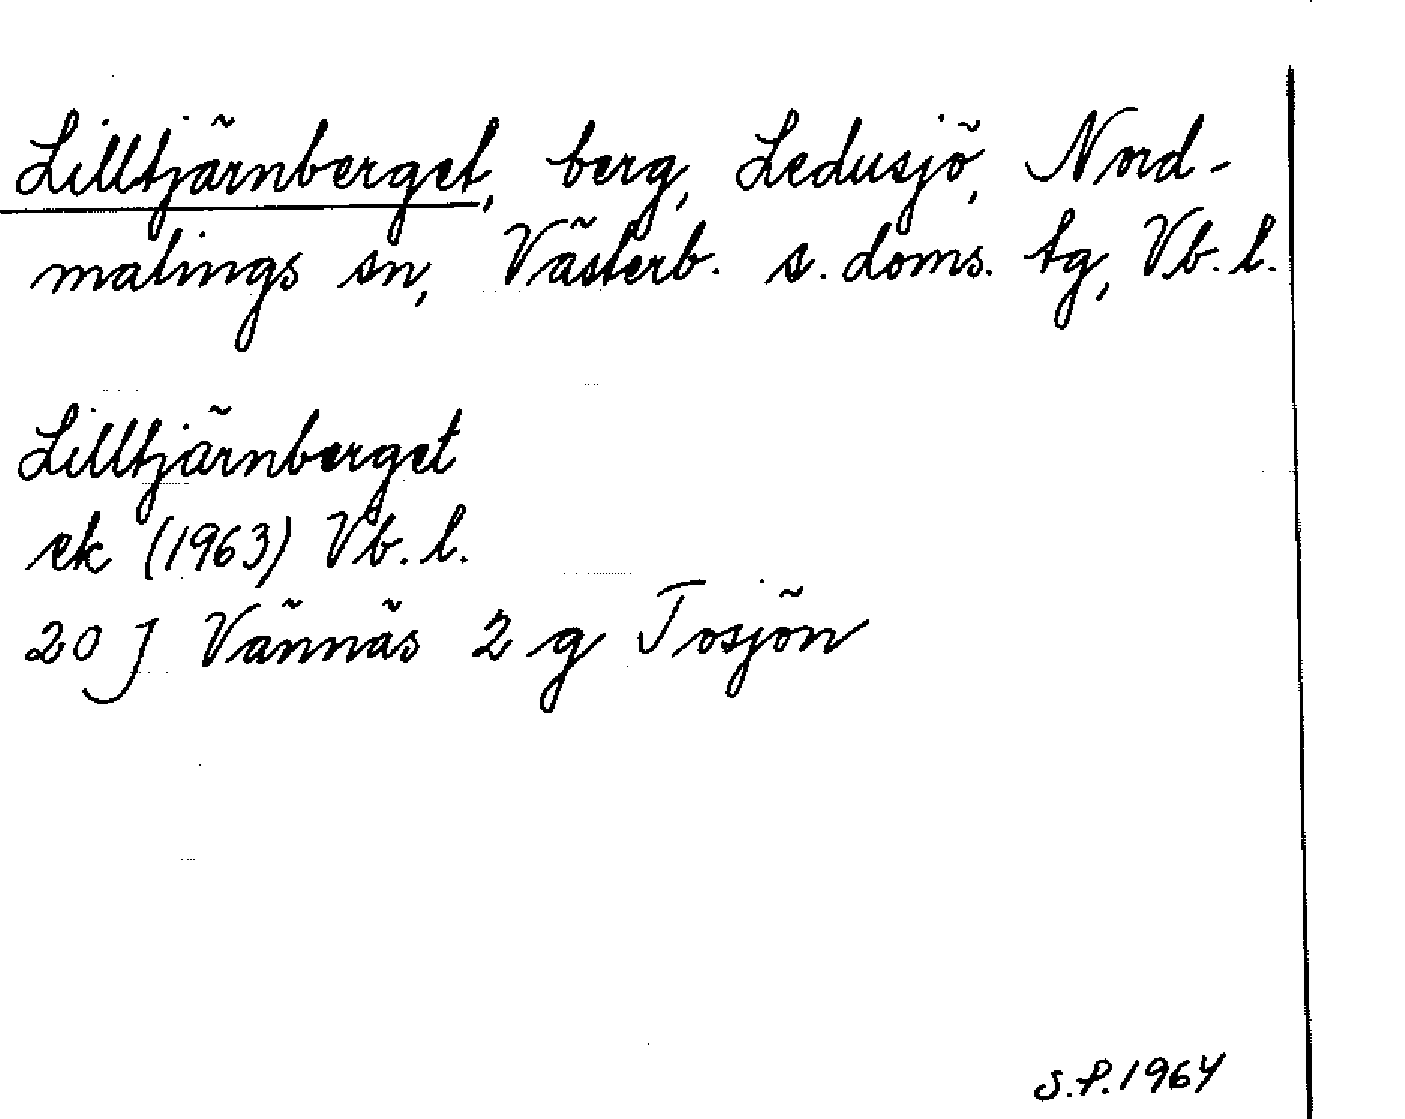 Lilltjärnberget, berg, Ledusjö, Nord-
malings sn, Västerb. s. doms. tg, Vb. l.
Lilltjärnberget
ek (1963) Vb. l.
20 J Vännäs 2 g Tosjön
S.P. 1964